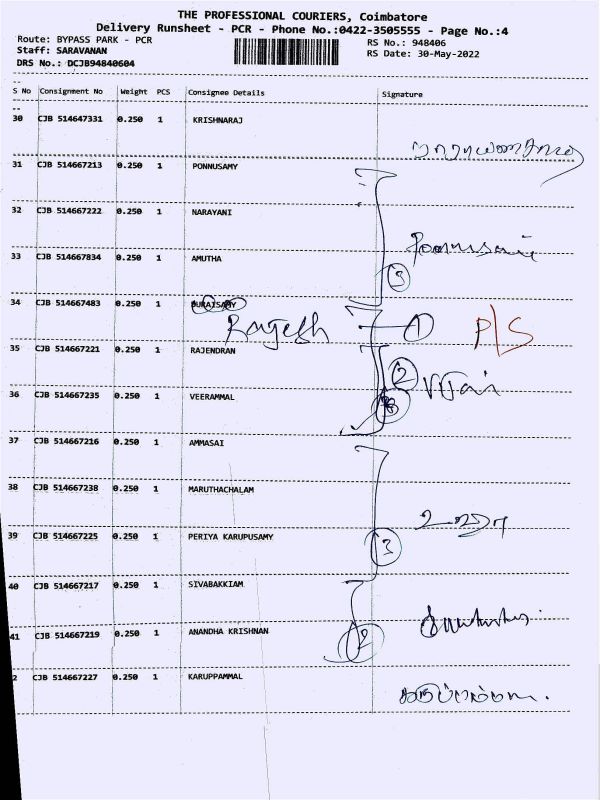 THE PROFESSIONAL COURIERS, Coimbatore
Delivery Runsheet - PCR - Phone No.:0422-3505555 - Page No.:4
Route: BYPASS PARK - PCR
RS No.: 948406
Staff: SARAVANAN
RS Date: 30-May-2022
DRS No.: DCJB94840604
S No Consignment No Weight PCS Consignee Details Signature
30 CJB 514647331 0.250 1 KRISHNARAJ
31 CJB 514667213 0.250 1 PONNUSAMY
32 CJB 514667222 0.250 1 NARAYANI
33 CJB 514667834 0.250 1 AMUTHA
3
34 CJB 514667483 0.250 1 DURAISAMY
Rajesh 1 P/S
35 CJB 514667221 0.250 1 RAJENDRAN
2
36 CJB 514667235 0.250 1 VEERAMMAL
37 CJB 514667216 0.250 1 AMMASAI
38 CJB 514667238 0.250 1 MARUTHACHALAM
39 CJB 514667225 0.250 1 PERIYA KARUPUSAMY
3
40 CJB 514667217 0.250 1 SIVABAKKIAM
41 CJB 514667219 0.250 1 ANANDHA KRISHNAN
2
2 CJB 514667227 0.250 1 KARUPPAMMAL